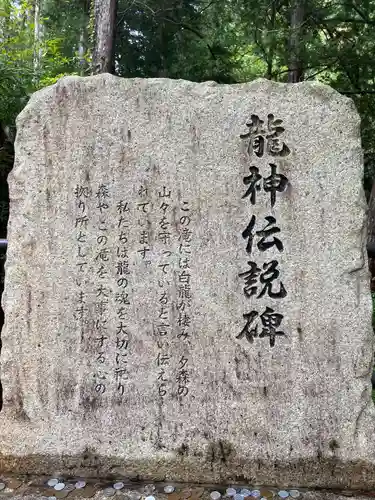 龍神伝説碑
この滝には白龍が棲み、夕森の
山々を守っていると言い伝えら
れています。
私たちは龍の魂を大切に祀り
森やこの滝を大事にする心の
拠り所としています。